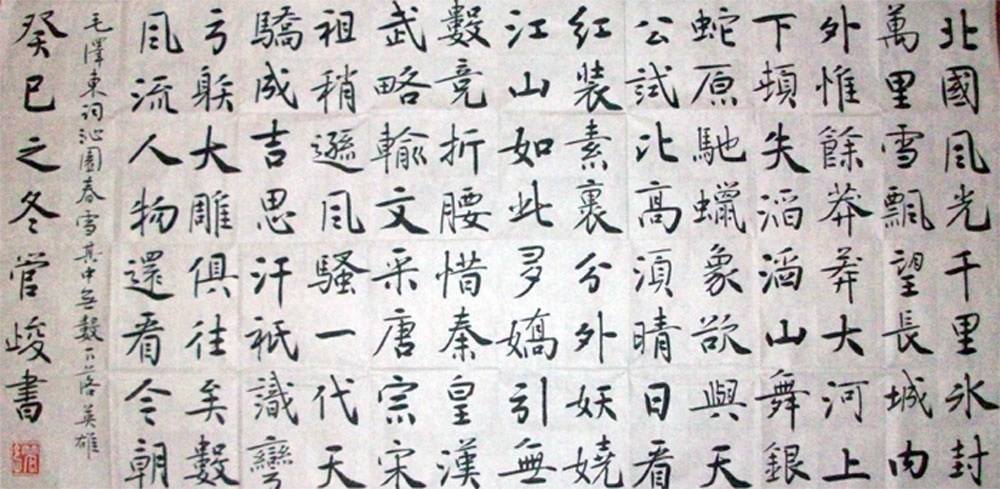 北國風光千里氷封
萬里雪飄望長城内
外惟餘莽莽大河上
下頓失滔滔山舞銀
蛇原馳蠟象欲與天
公試比高須晴日看
紅裝素裹分外妖嬈
江山如此多嬌引無
數竞折腰惜秦皇漢
武略輸文采唐宗宋
祖稍遜風騷一代天
驕成吉思汗祇識彎
弓躲大雕俱往矣數
風流人物還看今朝
毛澤東詞沁園春雪其中無數下落英雄
癸巳之冬管峻書